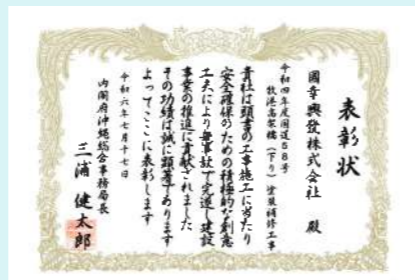 表彰状
國幸興發株式会社 殿
令和四年度国道58号
牧港高架橋(下り)塗装補修工事
貴社は頭書の工事施工に当たり
安全確保のための積極的な創意
工夫により無事故で完遂し建設
事業の推進に貢献されました
その功績は誠に顕著であります
よってここに表彰します
令和六年七月十七日
内閣府沖縄総合事務局長
三浦 健太郎